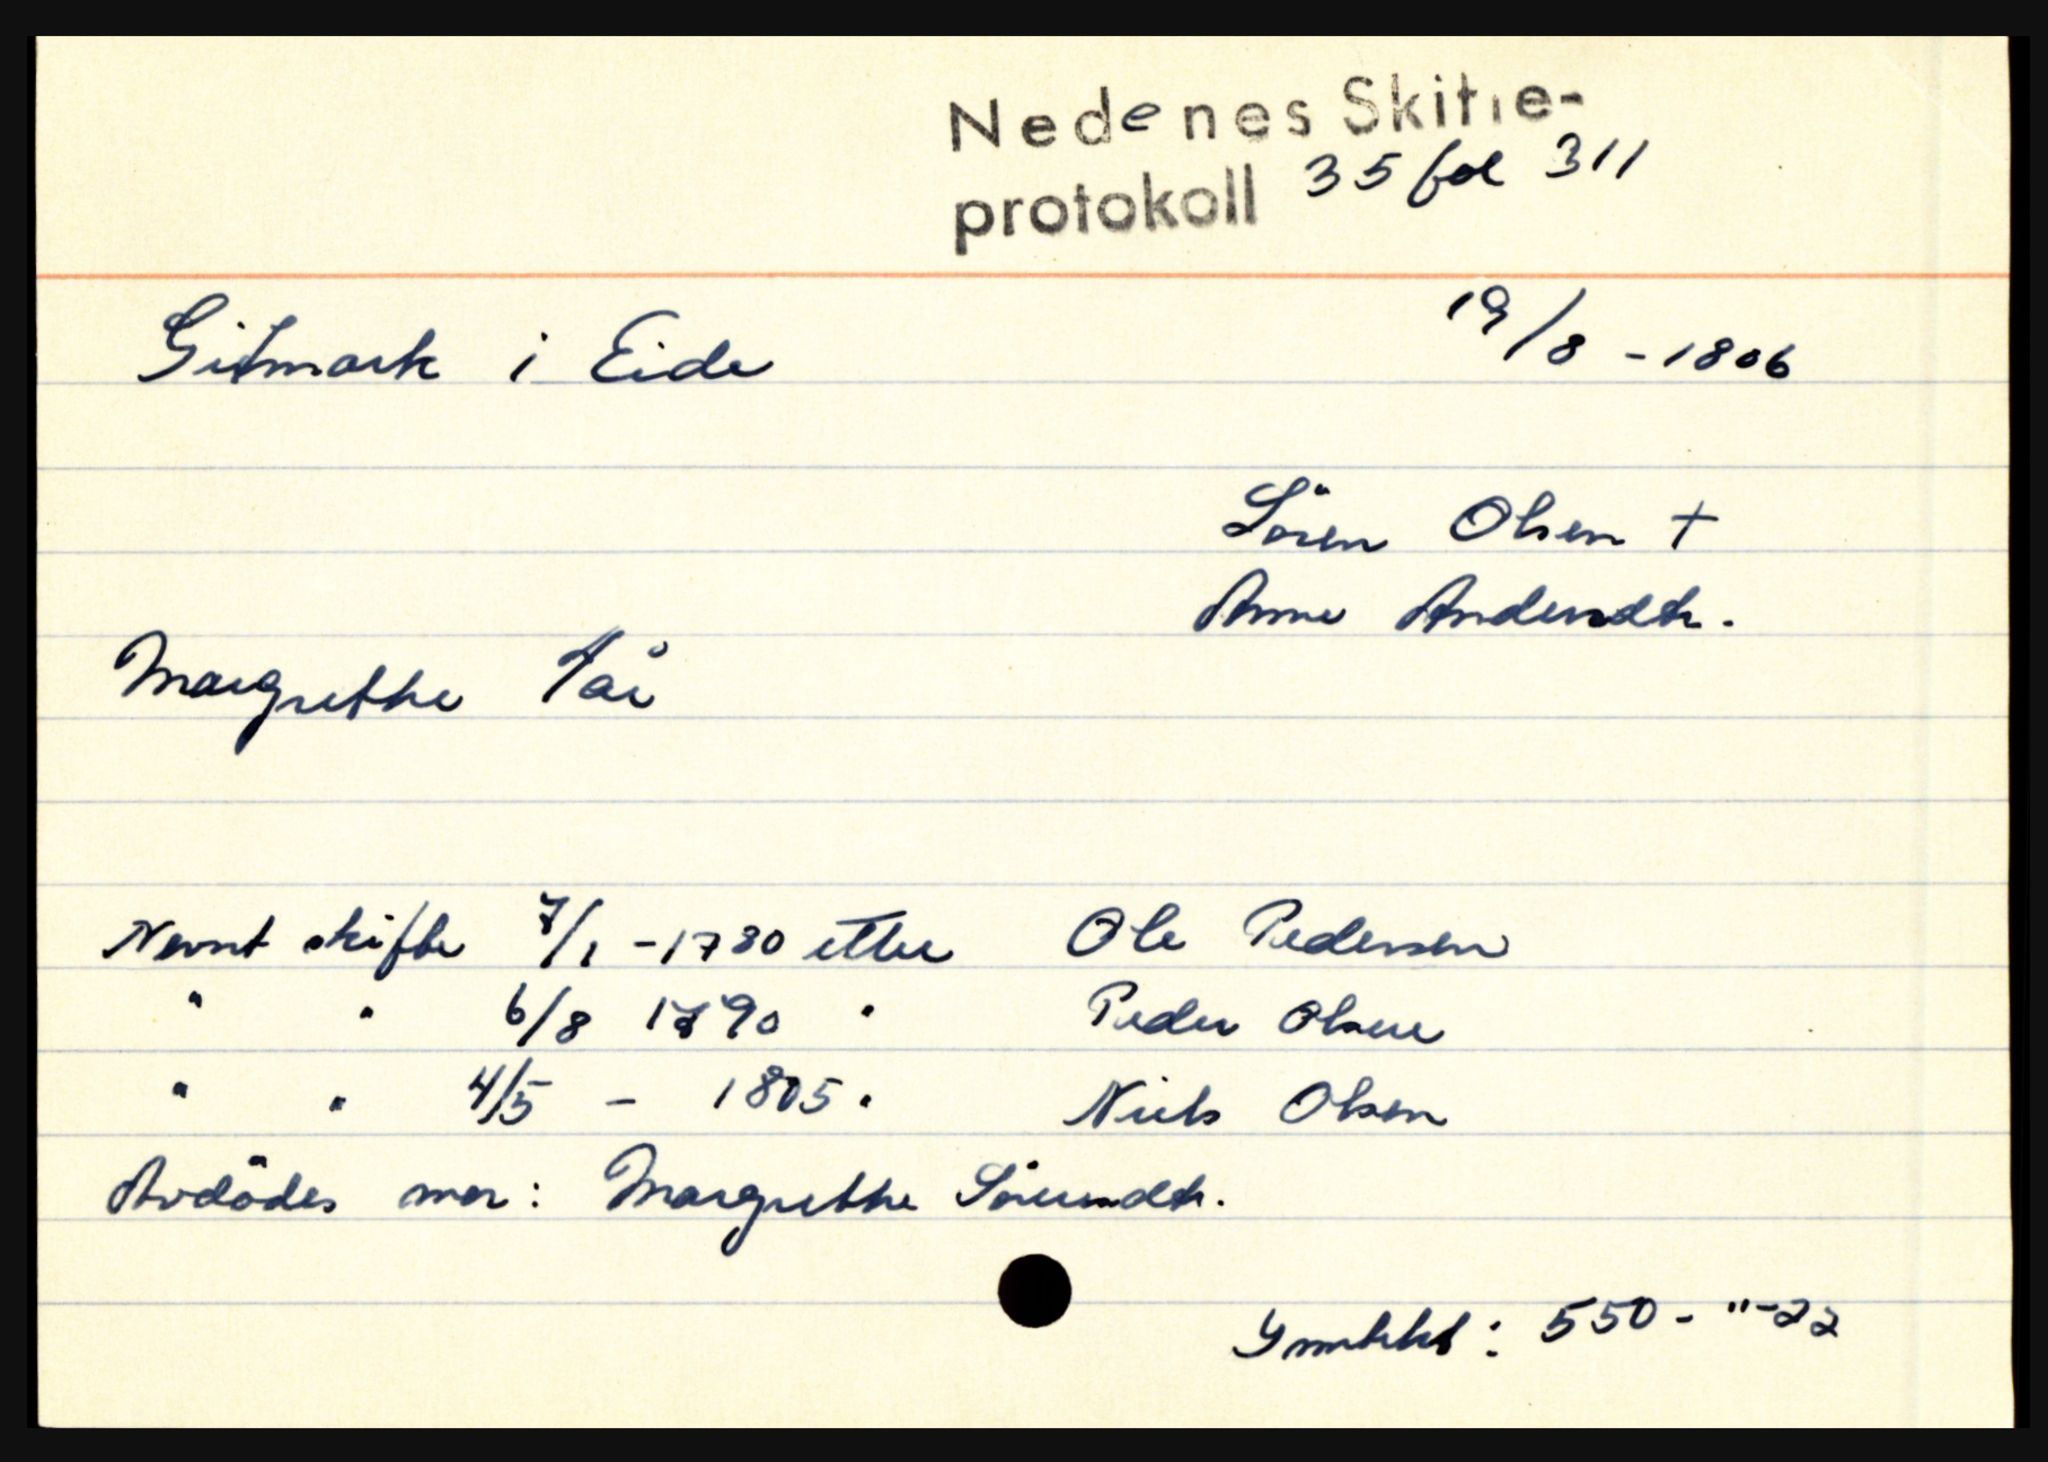 Nedenes Skifte-
protokoll 35 fol 311
Gitmark i Eide 19/8 - 1806
Sören Olsen +
Anne Andersdtr.
Margrethe 1/2 år
Nevnt skifte 7/1 - 1780 etter Ole Pedersen
" " 6/8 1790 " Peder Olsen
" " 4/5 - 1805 " Niels Olsen
Avdödes mor: Margrethe Sörensdtr.
550 - " - 22